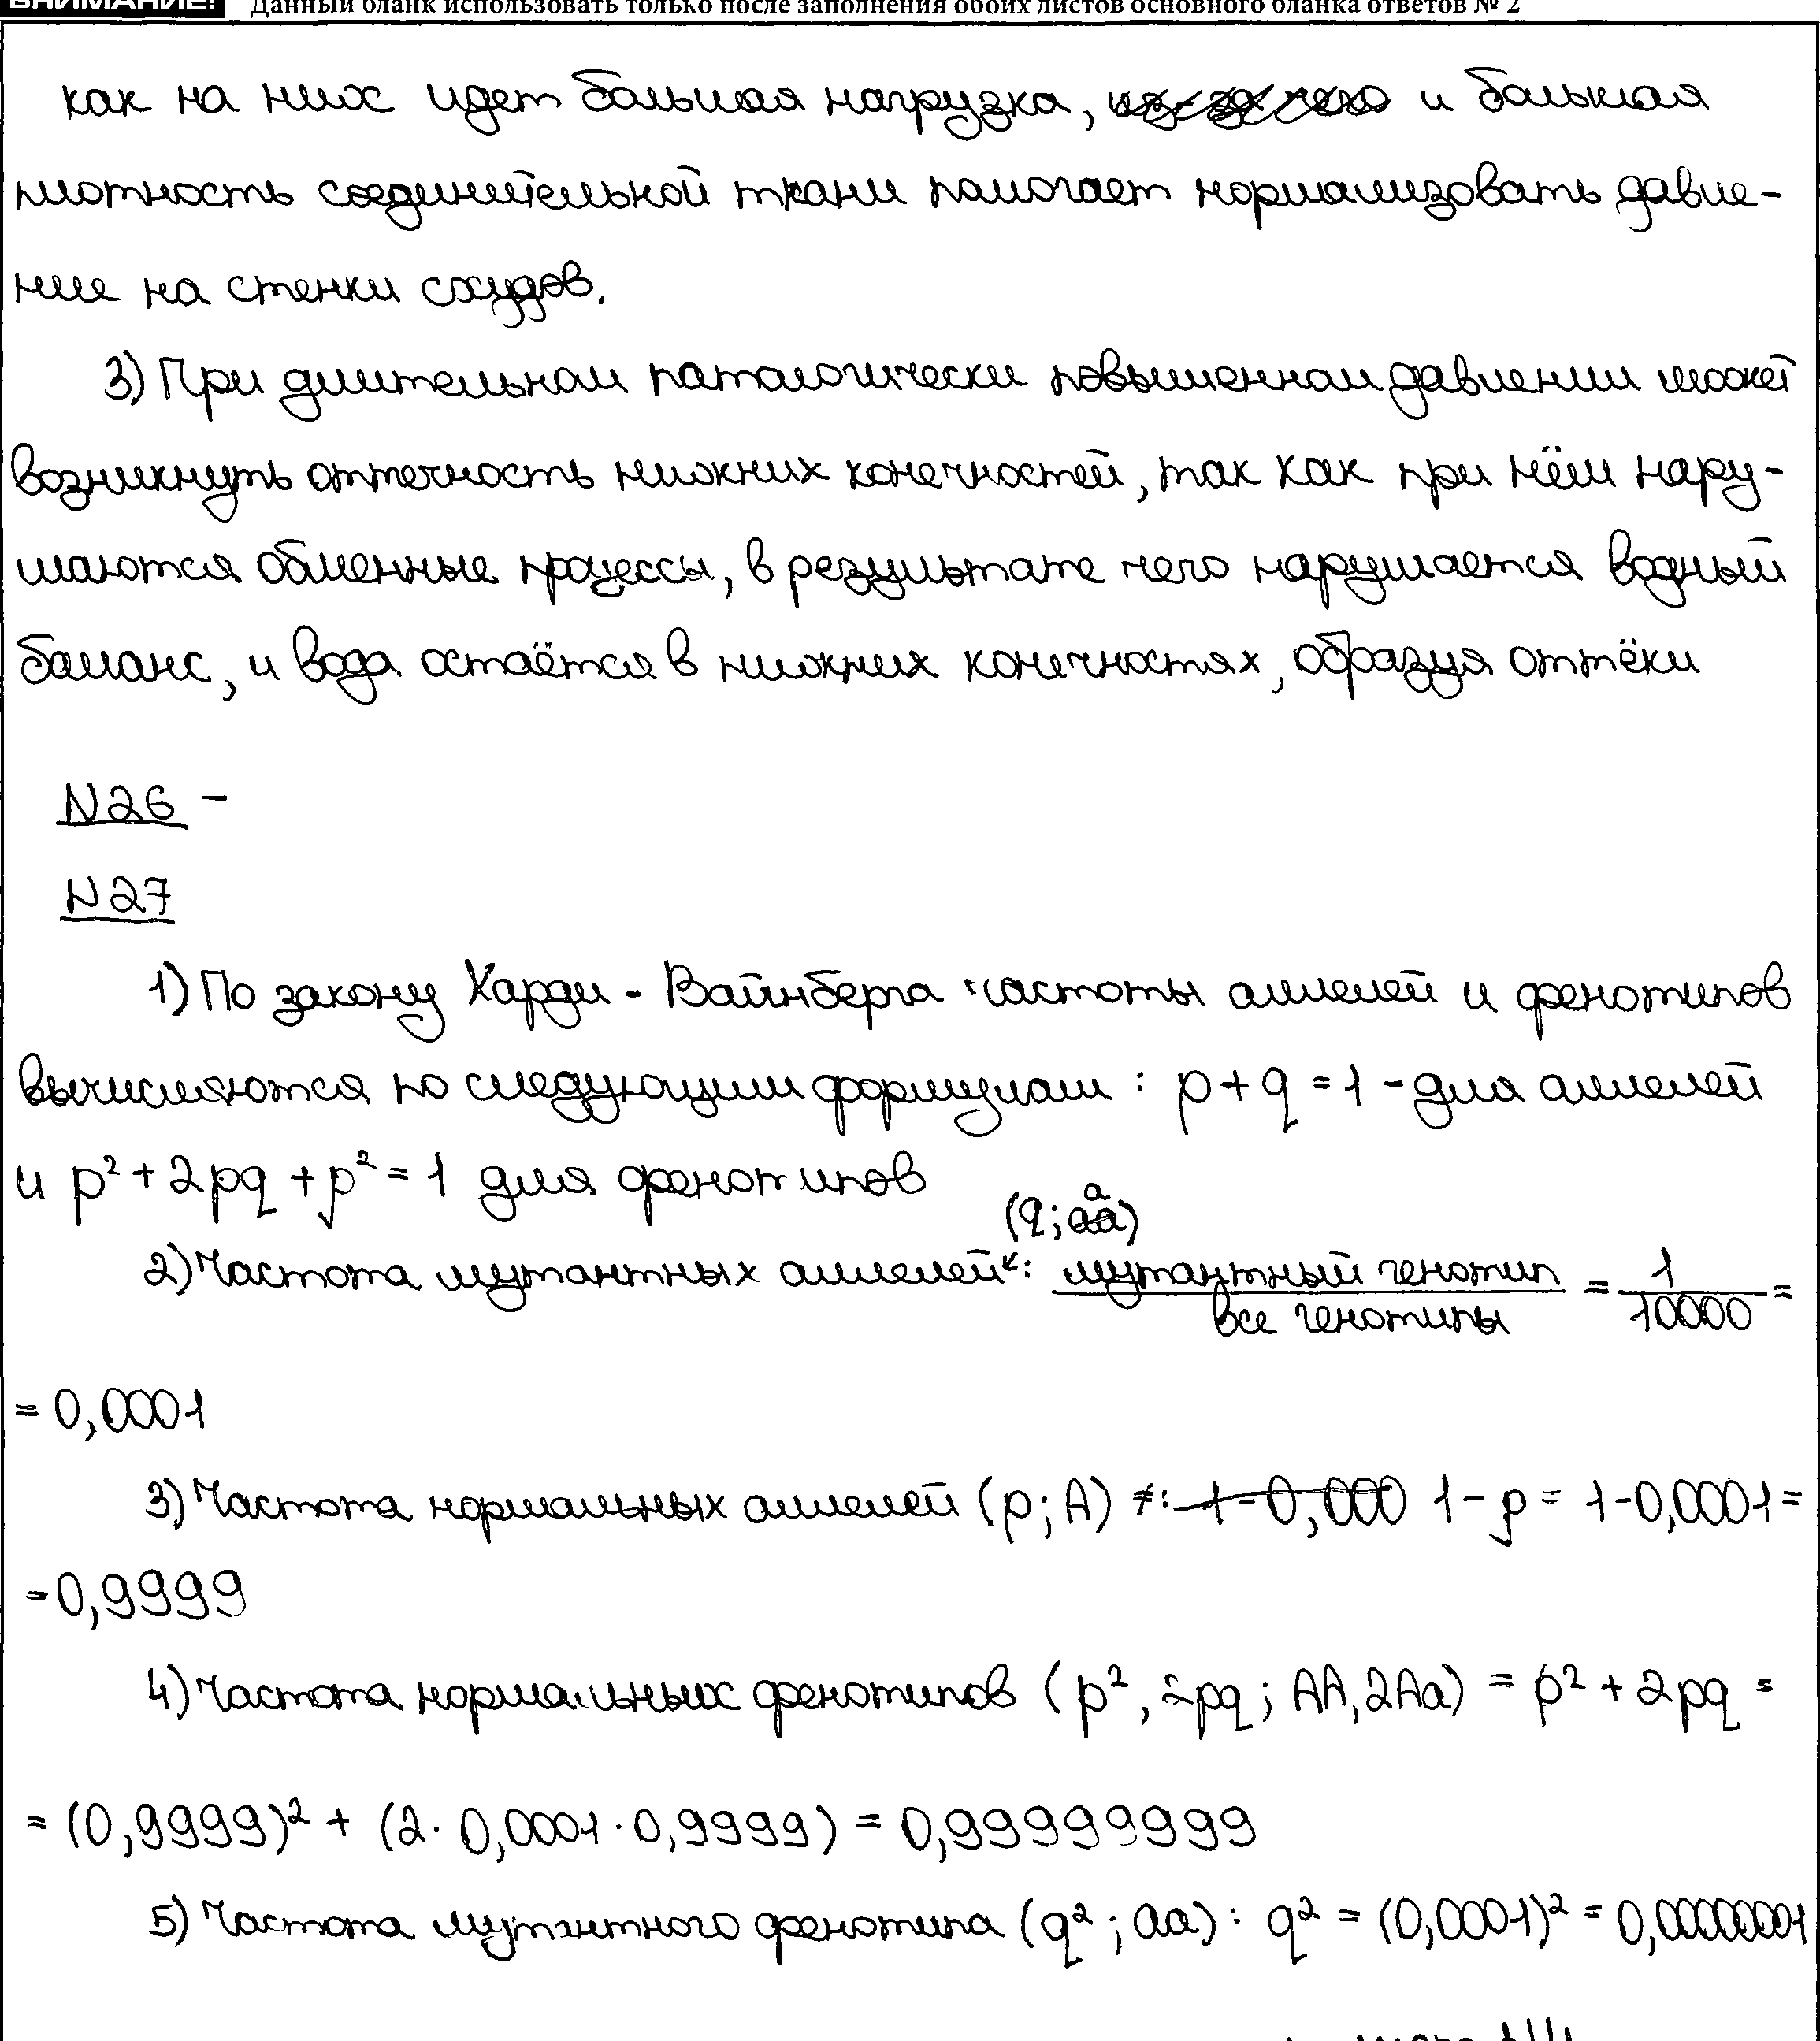 ВНИМАНИЕ! Данный бланк использовать только после заполнения обоих листов основного бланка ответов № 2
как на них идет большая нагрузка, и большая
плотность соединительной ткани помогает нормализовать давле-
ние на стенки сосудов.
3) При длительном патологически повышенном давлении может
возникнуть оттечность нижних конечностей, так как при нём нару-
шаются обменные процессы, в результате чего нарушается водный
баланс, и вода остаётся в нижних конечностях, образуя оттёки
N26 -
N27
1) По закону Харди - Вайнберга частоты аллелей и фенотипов
вычисляются по следующим формулам: p + q = 1 - для аллелей
и p² + 2pq + p² = 1 для фенотипов
(q; a)
2) Частота мутантных аллелей: мутантный генотип / все генотипы = 1/10000 =
= 0,0001
3) Частота нормальных аллелей (p; A) : 1 - p = 1 - 0,0001 =
= 0,9999
4) Частота нормальных фенотипов (p², 2pq; AA, 2Aa) = p² + 2pq =
= (0,9999)² + (2 · 0,0001 · 0,9999) = 0,99999999
5) Частота мутантного фенотипа (q²; aa): q² = (0,0001)² = 0,00000001